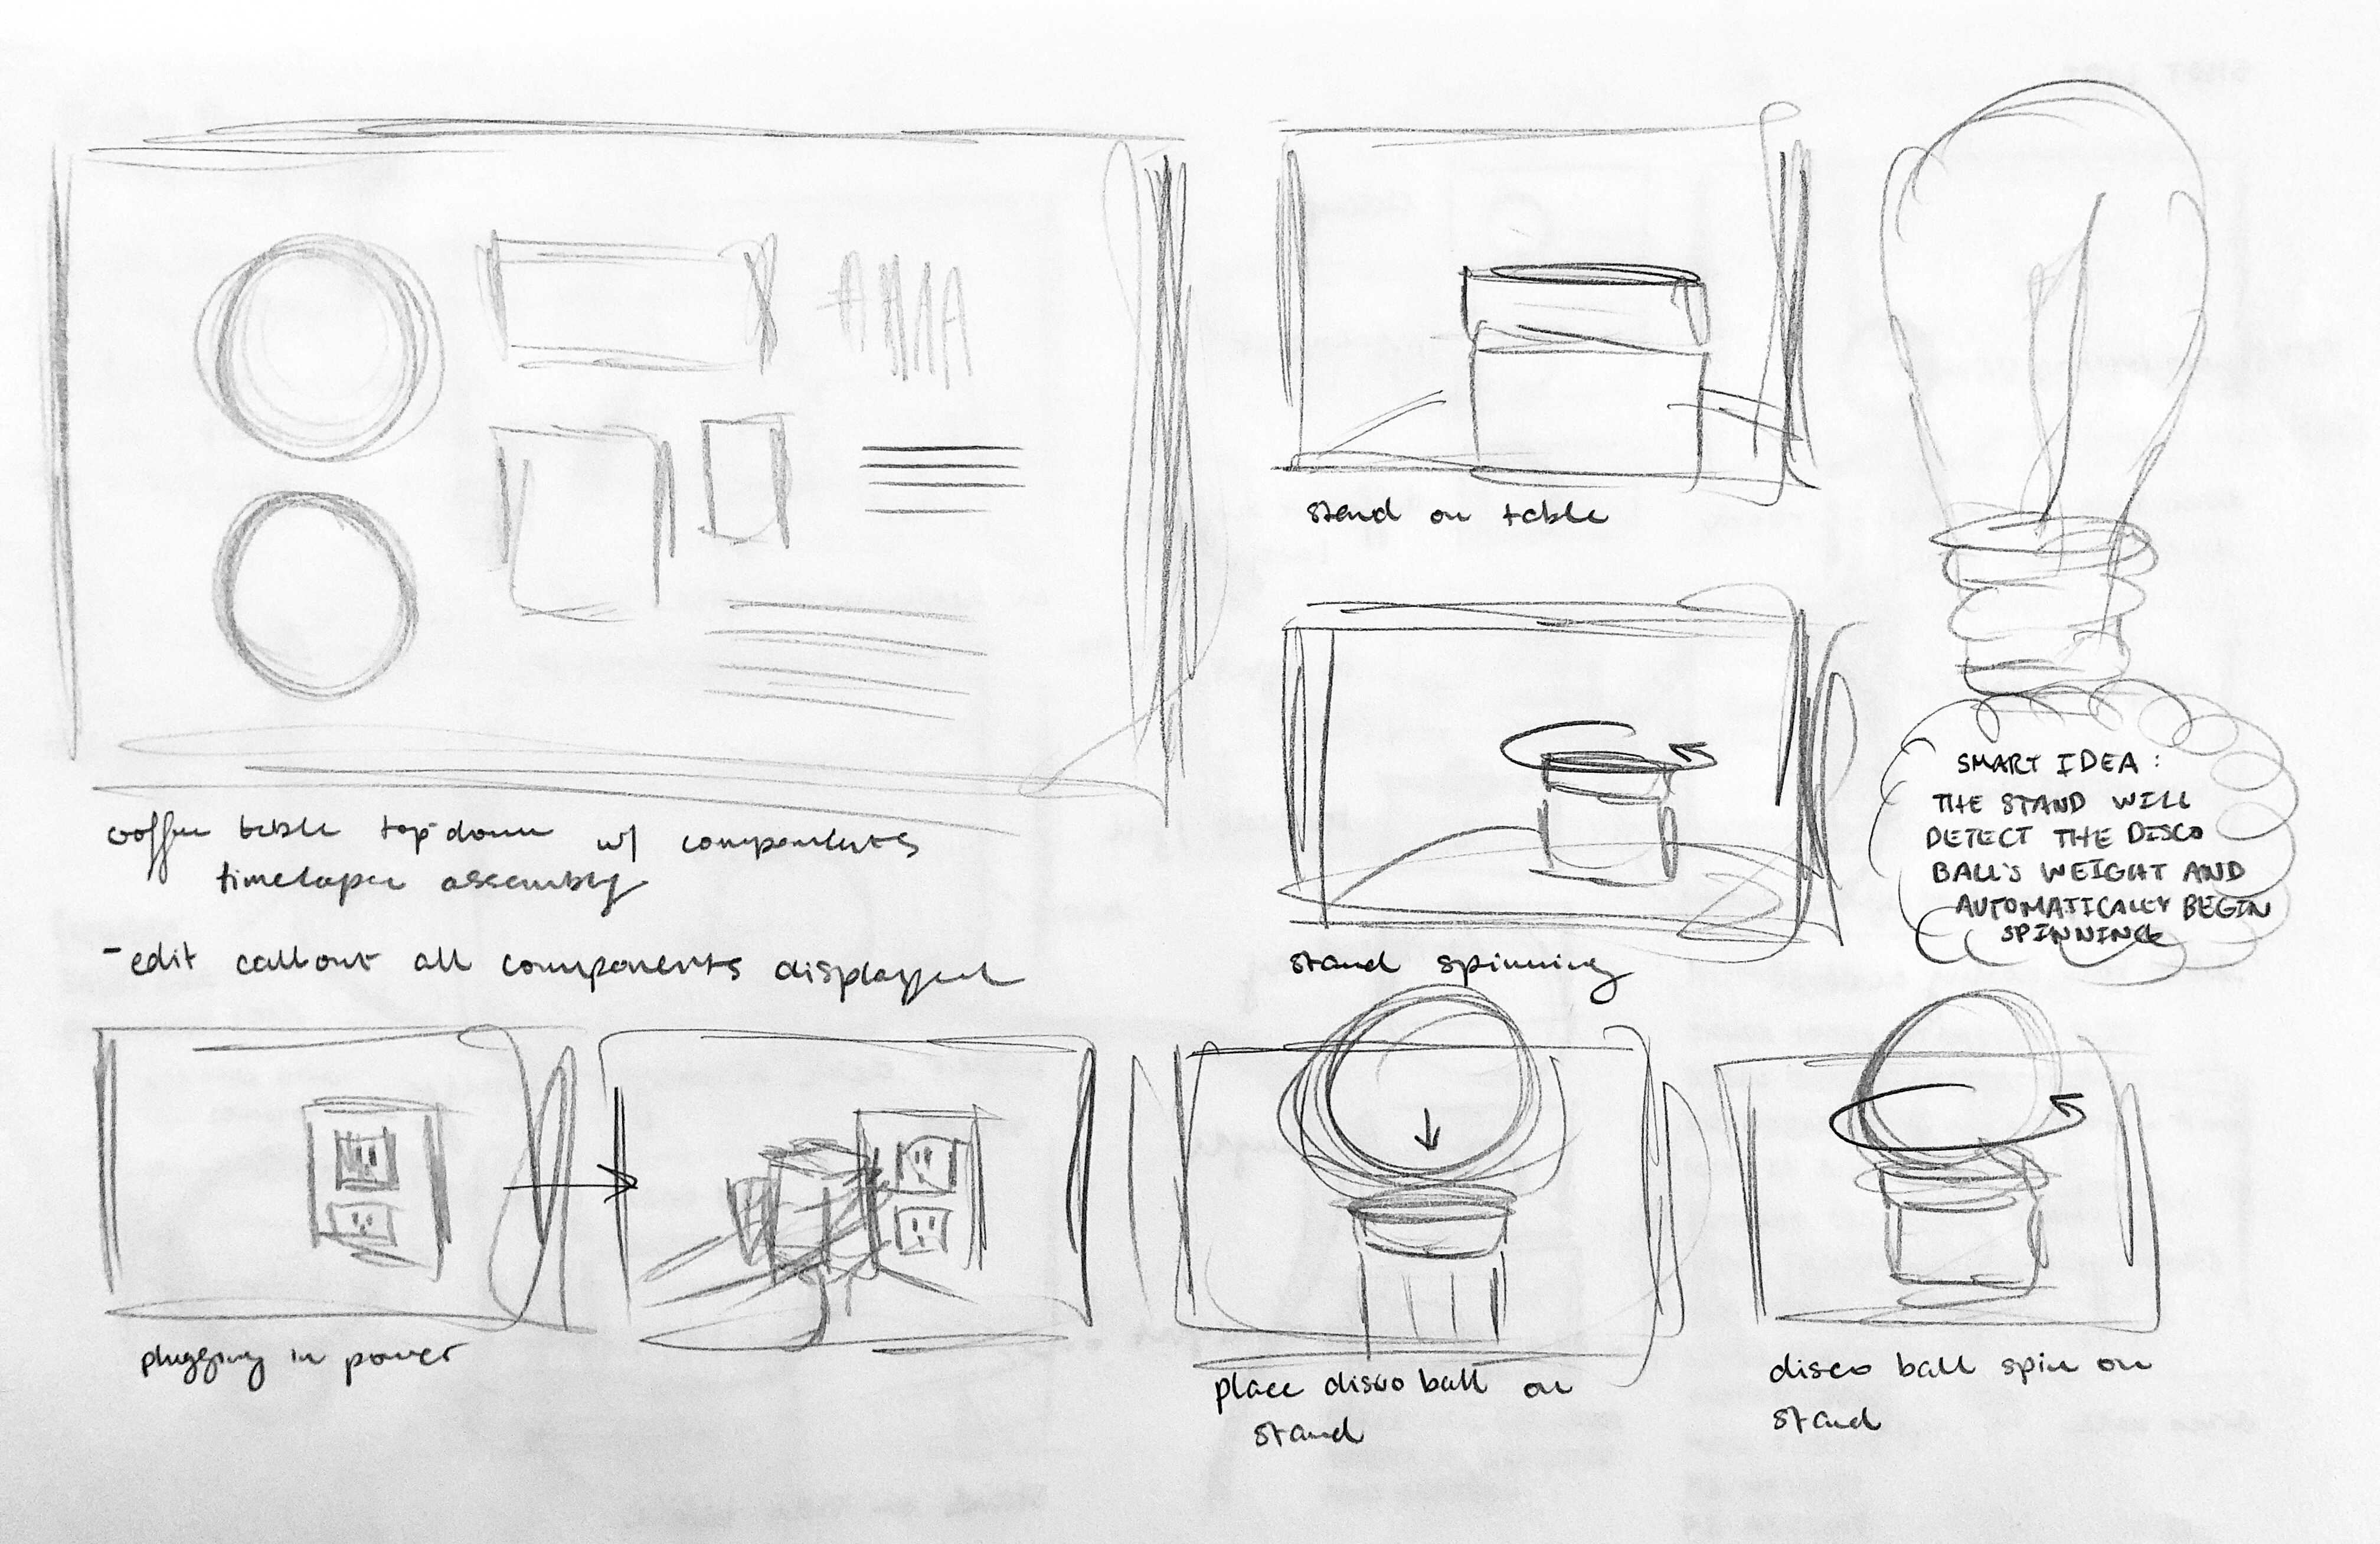 coffee table top down w/ components
timelapse assembly
- edit callout all components displayed
stand on table
stand spinning
SMART IDEA:
THE STAND WILL
DETECT THE DISCO
BALL'S WEIGHT AND
AUTOMATICALLY BEGIN
SPINNING
plugging in power
place disco ball on
stand
disco ball spin on
stand